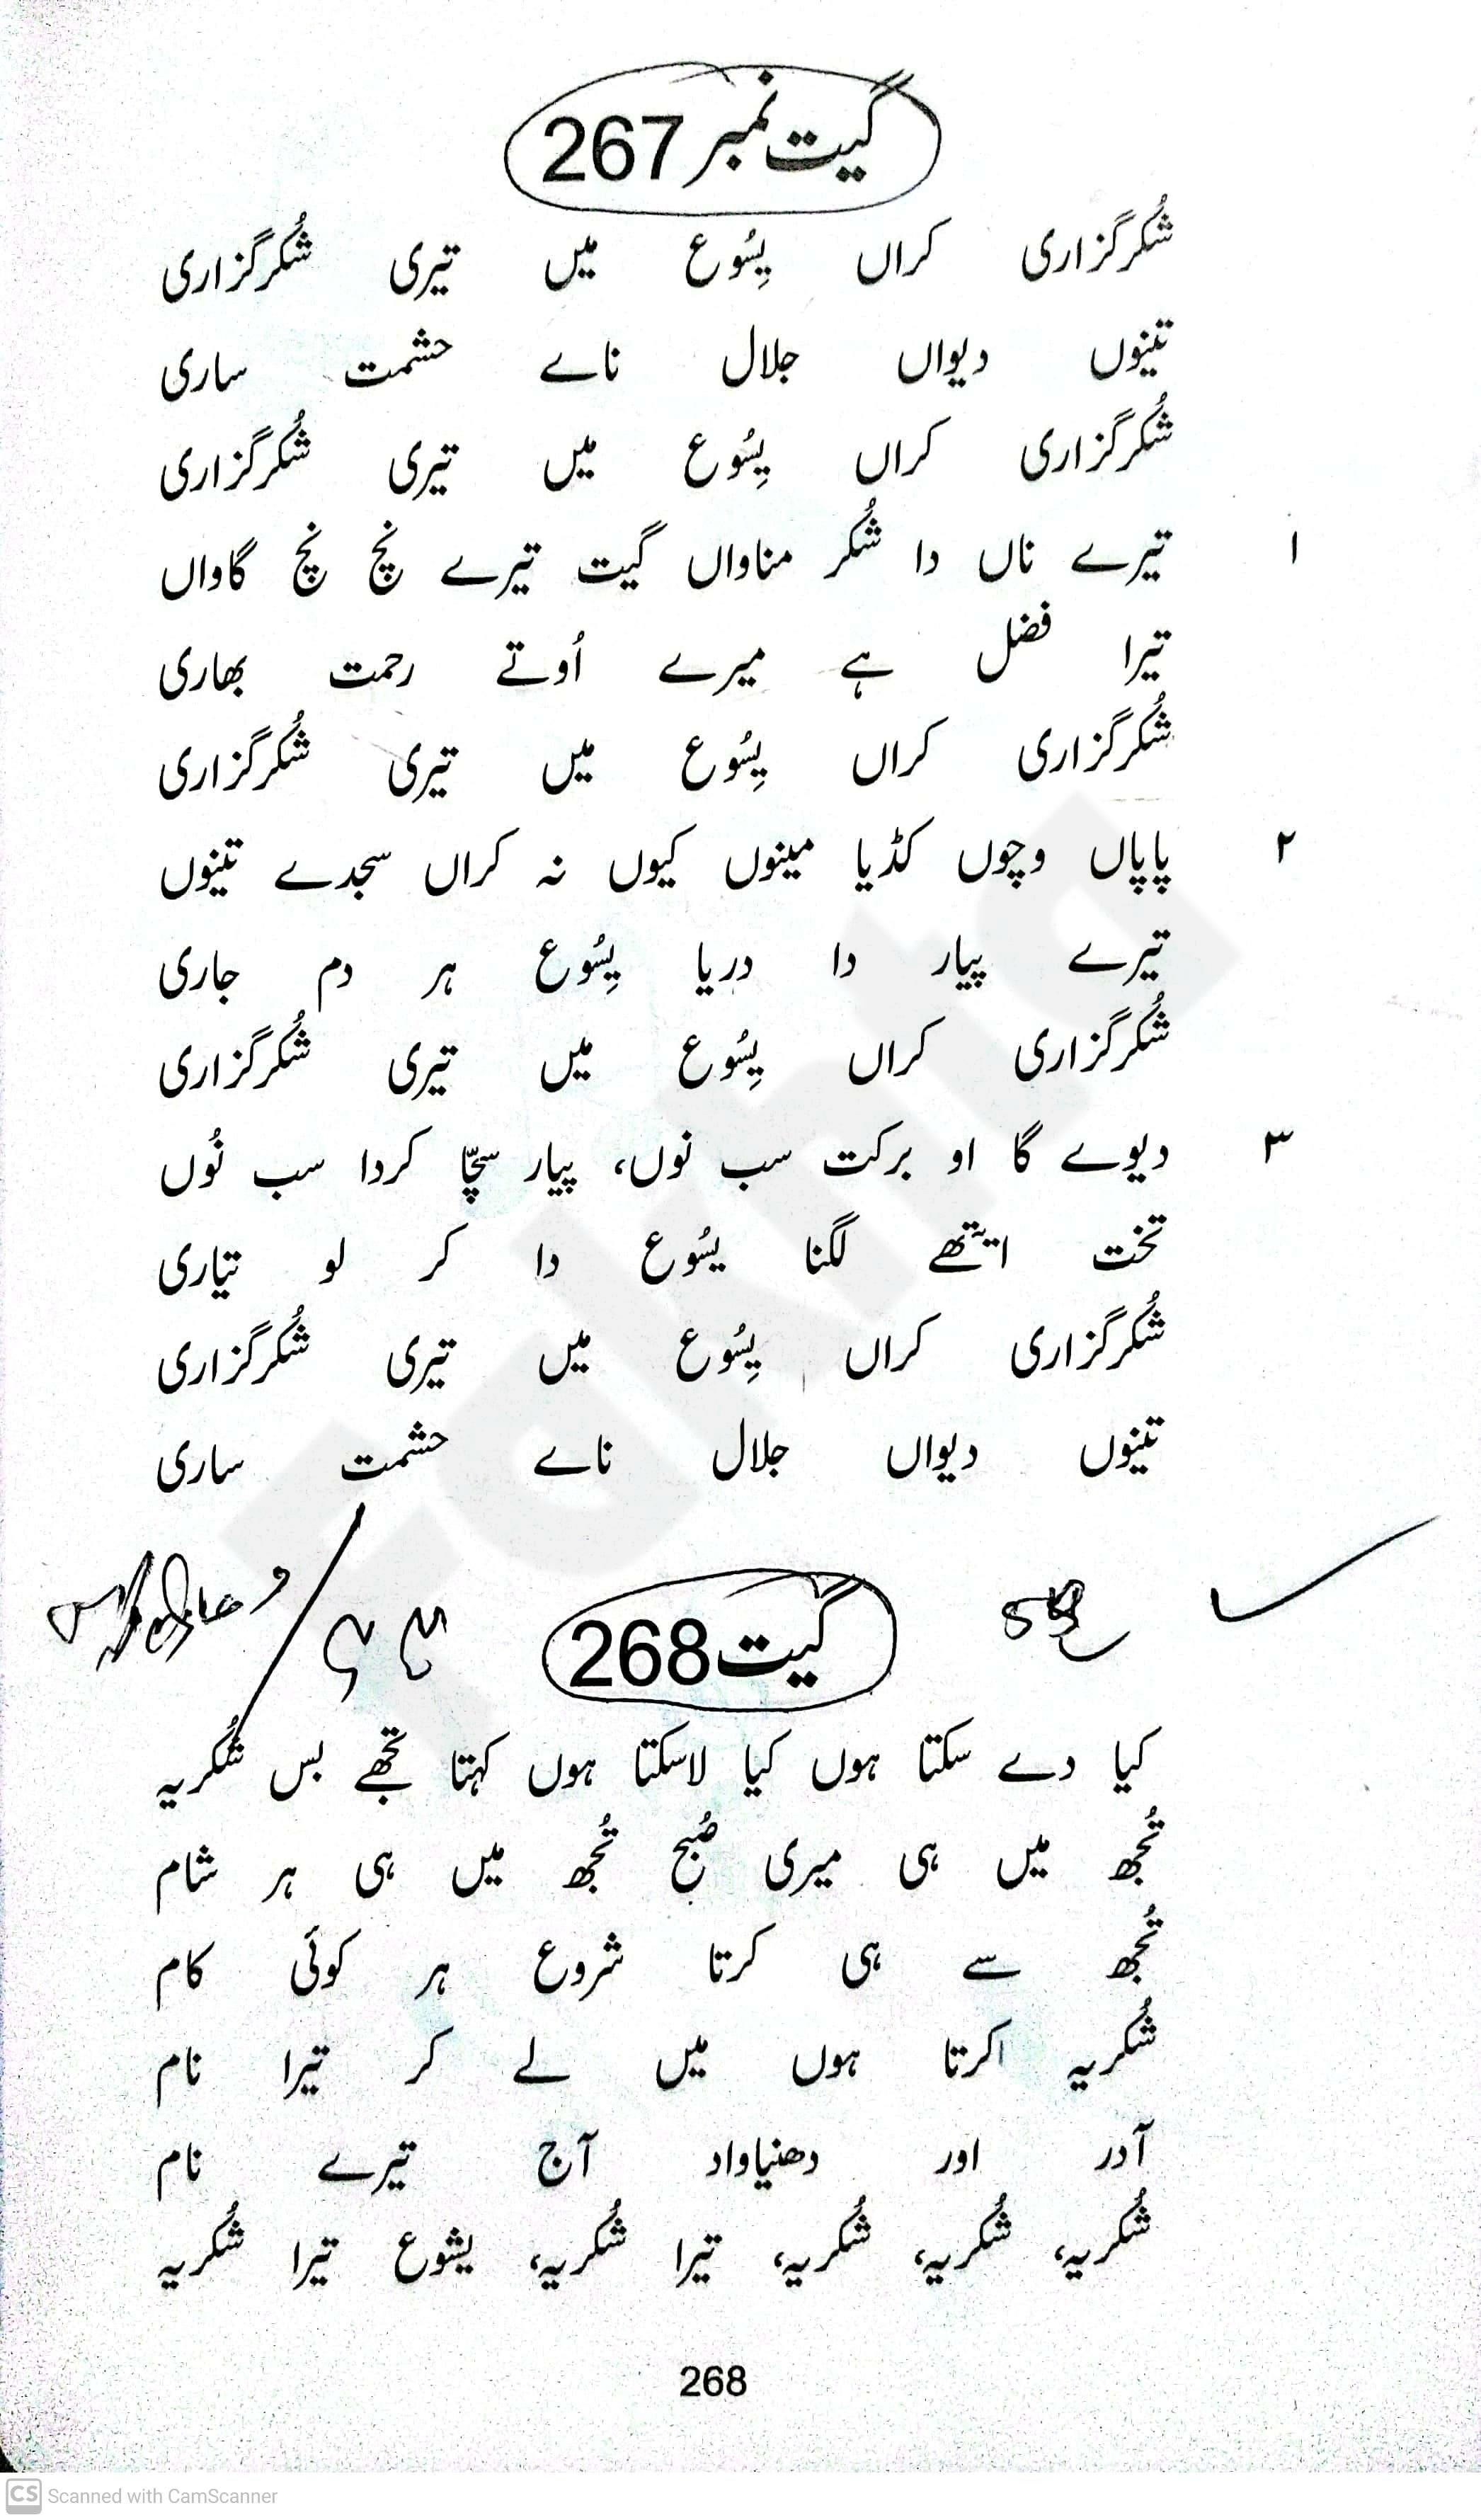 گیت نمبر 267
شُکرگزاری کراں یِسُوع میں تیری شُکرگزاری
تینوں دیواں جلال نالے حشمت ساری
شُکرگزاری کراں یِسُوع میں تیری شُکرگزاری
۱ تیرے ناں دا شُکر مناواں گیت تیرے نچ نچ گاواں
تیرا فضل ہے میرے اُوتے رحمت بھاری
شُکرگزاری کراں یِسُوع میں تیری شُکرگزاری
۲ پاپاں وچوں کڈیا مینوں کیوں نہ کراں سجدے تینوں
تیرے پیار دا دریا یِسُوع ہر دم جاری
شُکرگزاری کراں یِسُوع میں تیری شُکرگزاری
۳ دیوے گا او برکت سب نوں، پیار سچّا کردا سب نُوں
تخت ایتھے لگنا یسُوع دا کر لو تیّاری
شُکرگزاری کراں یِسُوع میں تیری شُکرگزاری
تینوں دیواں جلال نالے حشمت ساری
گیت 268
کیا دے سکتا ہوں کیا لاسکتا ہوں کہتا تجھے بس شُکریہ
تُجھ میں ہی میری صُبح تُجھ میں ہی ہر شام
تُجھ سے ہی کرتا شروع ہر کوئی کام
شُکریہ کرتا ہوں میں لے کر تیرا نام
آدر اور دھنیاواد آج تیرے نام
شُکریہ، شُکریہ، شُکریہ، تیرا شُکریہ، یشوع تیرا شُکریہ
268
CS Scanned with CamScanner